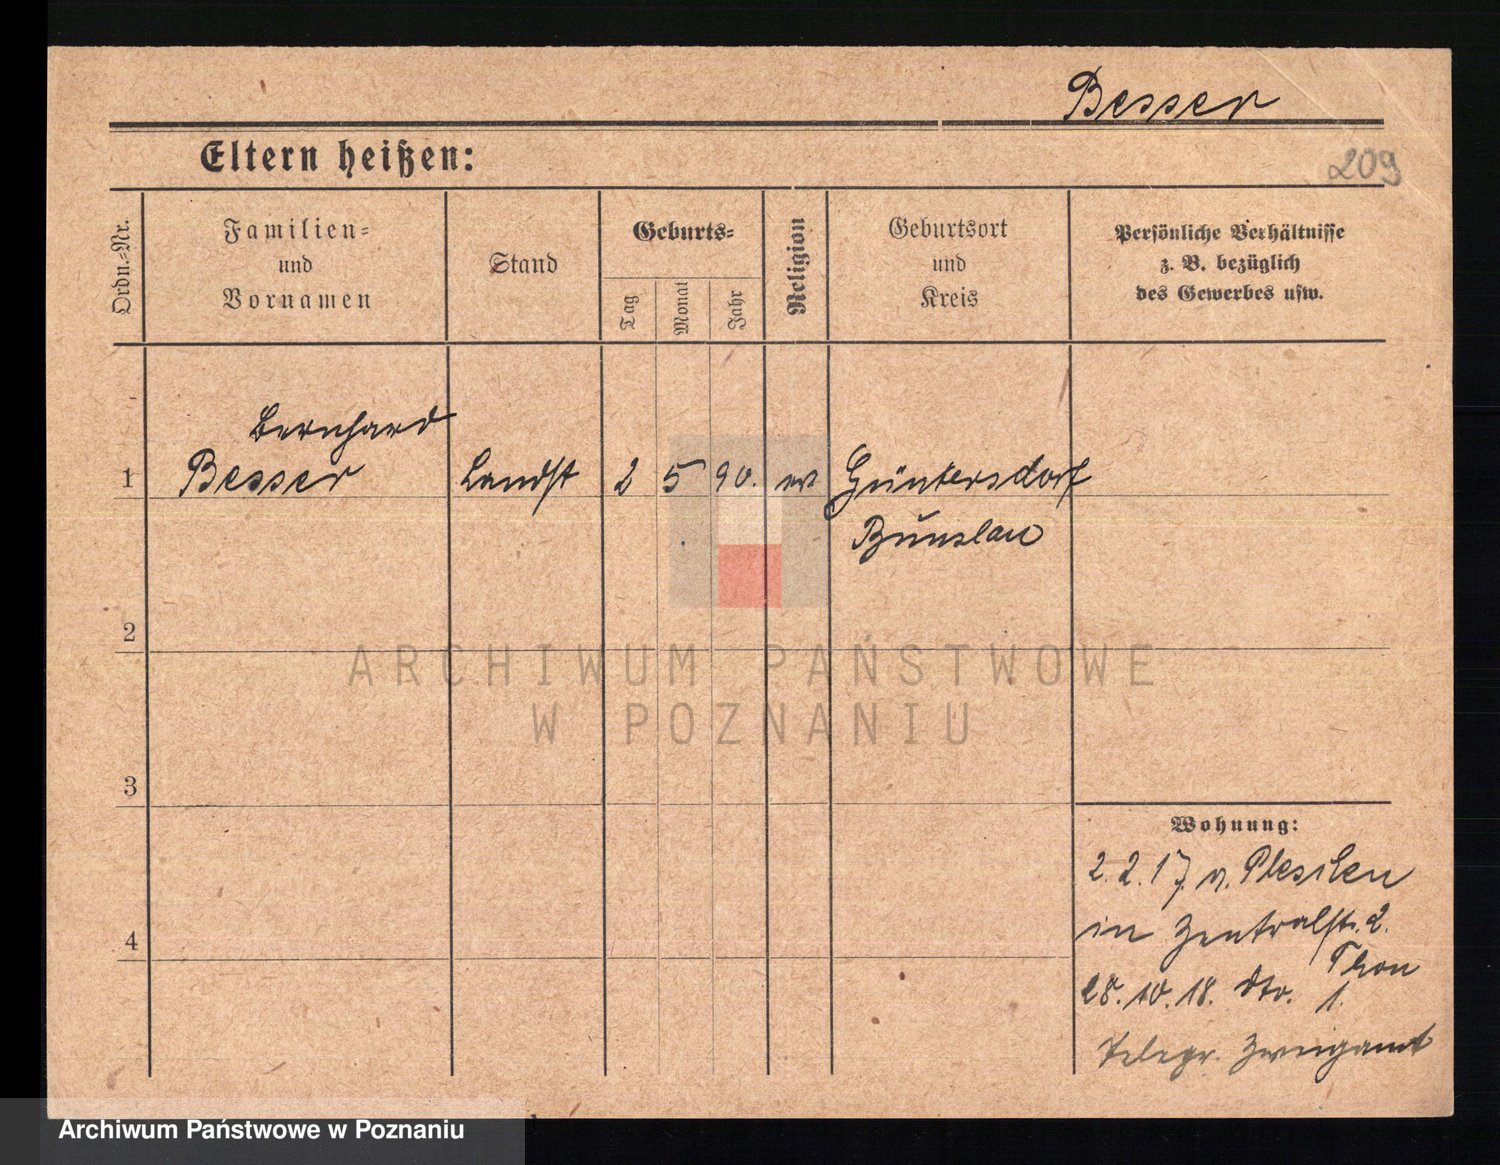 Besser
Eltern heißen:
209
Ordn.-Nr.
Familien-
und
Vornamen
Stand
Geburts-
Tag
Monat
Jahr
Religion
Geburtsort
und
Kreis
Persönliche Verhältnisse
z. B. bezüglich
des Gewerbes usw.
Bernhard
1 Besser Landst 2 5 90. ev Güntersdorf
Bunzlau
2
ARCHIWUM PAŃSTWOWE
W POZNANIU
3
Wohnung:
2.2.17 v. Pleschen
in Zentralstr. 2.
4
Thon
28.10.18. dto. 1.
Telegr. Zweigamt
Archiwum Państwowe w Poznaniu